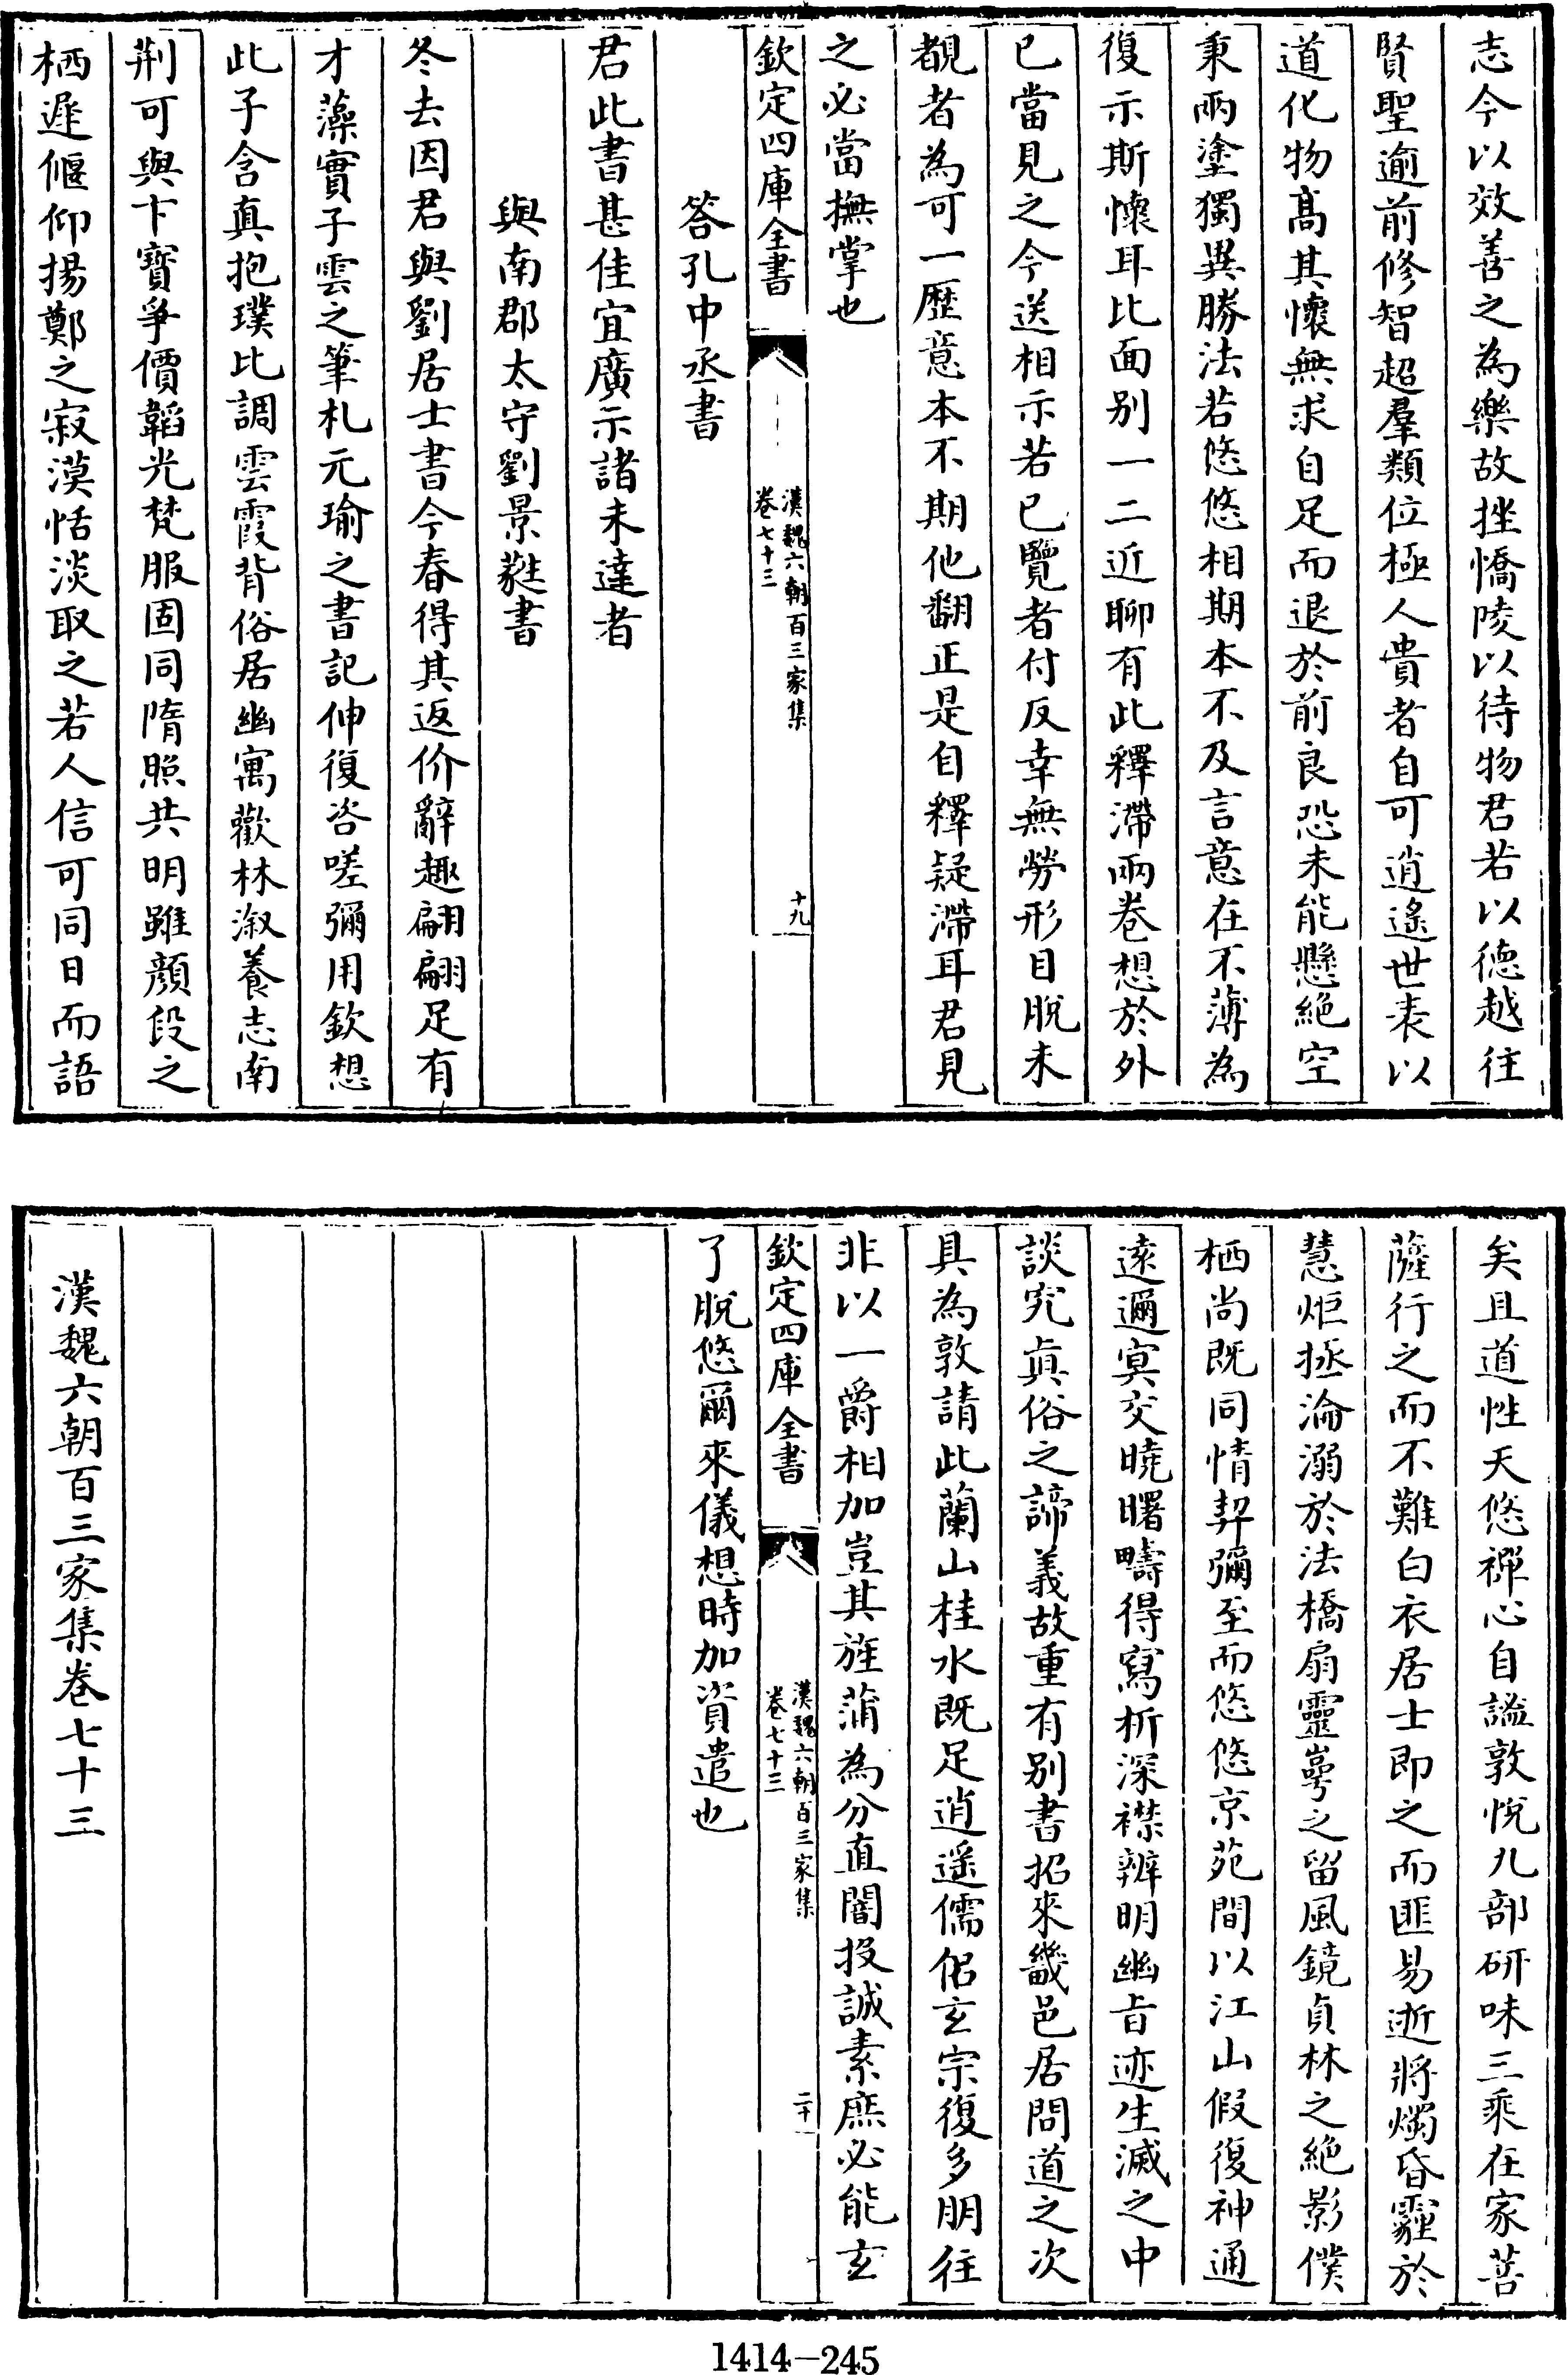 志今以效善之為樂故挫憍陵以待物君若以德越往
賢聖逾前修智超羣類位極人貴者自可逍遙世表以
道化物髙其懷無求自足而退於前良恐未能懸絶空
秉兩塗獨異勝法若悠悠相期本不及言意在不薄為
復示斯懷耳比面别一二近聊有此釋滯兩卷想於外
已當見之今送相示若已覽者付反幸無勞形目脫未
覩者為可一歴意本不期他翻正是自釋疑滯耳君見
之必當撫掌也
欽定四庫全書
漢魏六朝百三家集
卷七十三
十九
答孔中丞書
君此書甚佳宜廣示諸未達者
與南郡太守劉景蕤書
冬去因君與劉居士書今春得其返价辭趣翩翩足有
才藻實子雲之筆札元瑜之書記伸復咨嗟彌用欽想
此子含真抱璞比調雲霞背俗居幽寓歡林淑養志南
荆可與卞寳爭價韜光梵服固同隋照共明雖顔段之
栖遲偃仰揚鄭之寂漠恬淡取之若人信可同日而語
矣且道性天悠禪心自謐敦恱九部研味三乘在家菩
薩行之而不難白衣居士即之而匪易逝將燭昏霾於
慧炬拯淪溺於法橋扇靈崿之留風鏡貞林之絶影僕
栖尚既同情契彌至而悠悠京苑間以江山假復神通
逺邇冥交曉曙疇得寫析深襟辨明幽旨迹生滅之中
談究真俗之諦義故重有别書招來畿邑居問道之次
具為敦請此蘭山桂水既足逍遥儒侶玄宗復多朋往
非以一爵相加豈其旌蒲為分直闇投誠素庶必能玄
欽定四庫全書
漢魏六朝百三家集
卷七十三
二十
了脫悠爾來儀想時加資遣也
漢魏六朝百三家集卷七十三
1414-245